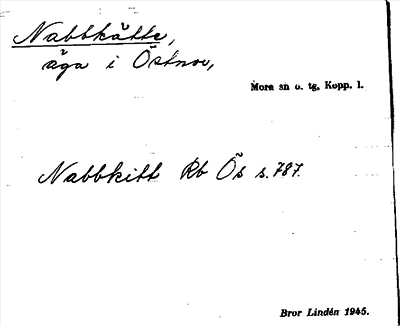 Nabbkätte,
äga i Östnor,
Mora sn o. tg, Kopp. l.
Nabbkitt Rb Ös s. 787.
Bror Lindén 1945.